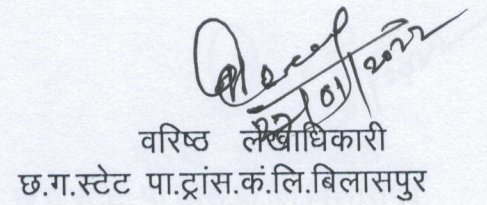 /01/2022
वरिष्ठ लेखाधिकारी
छ.ग.स्टेट पा.ट्रांस.कं.लि.बिलासपुर